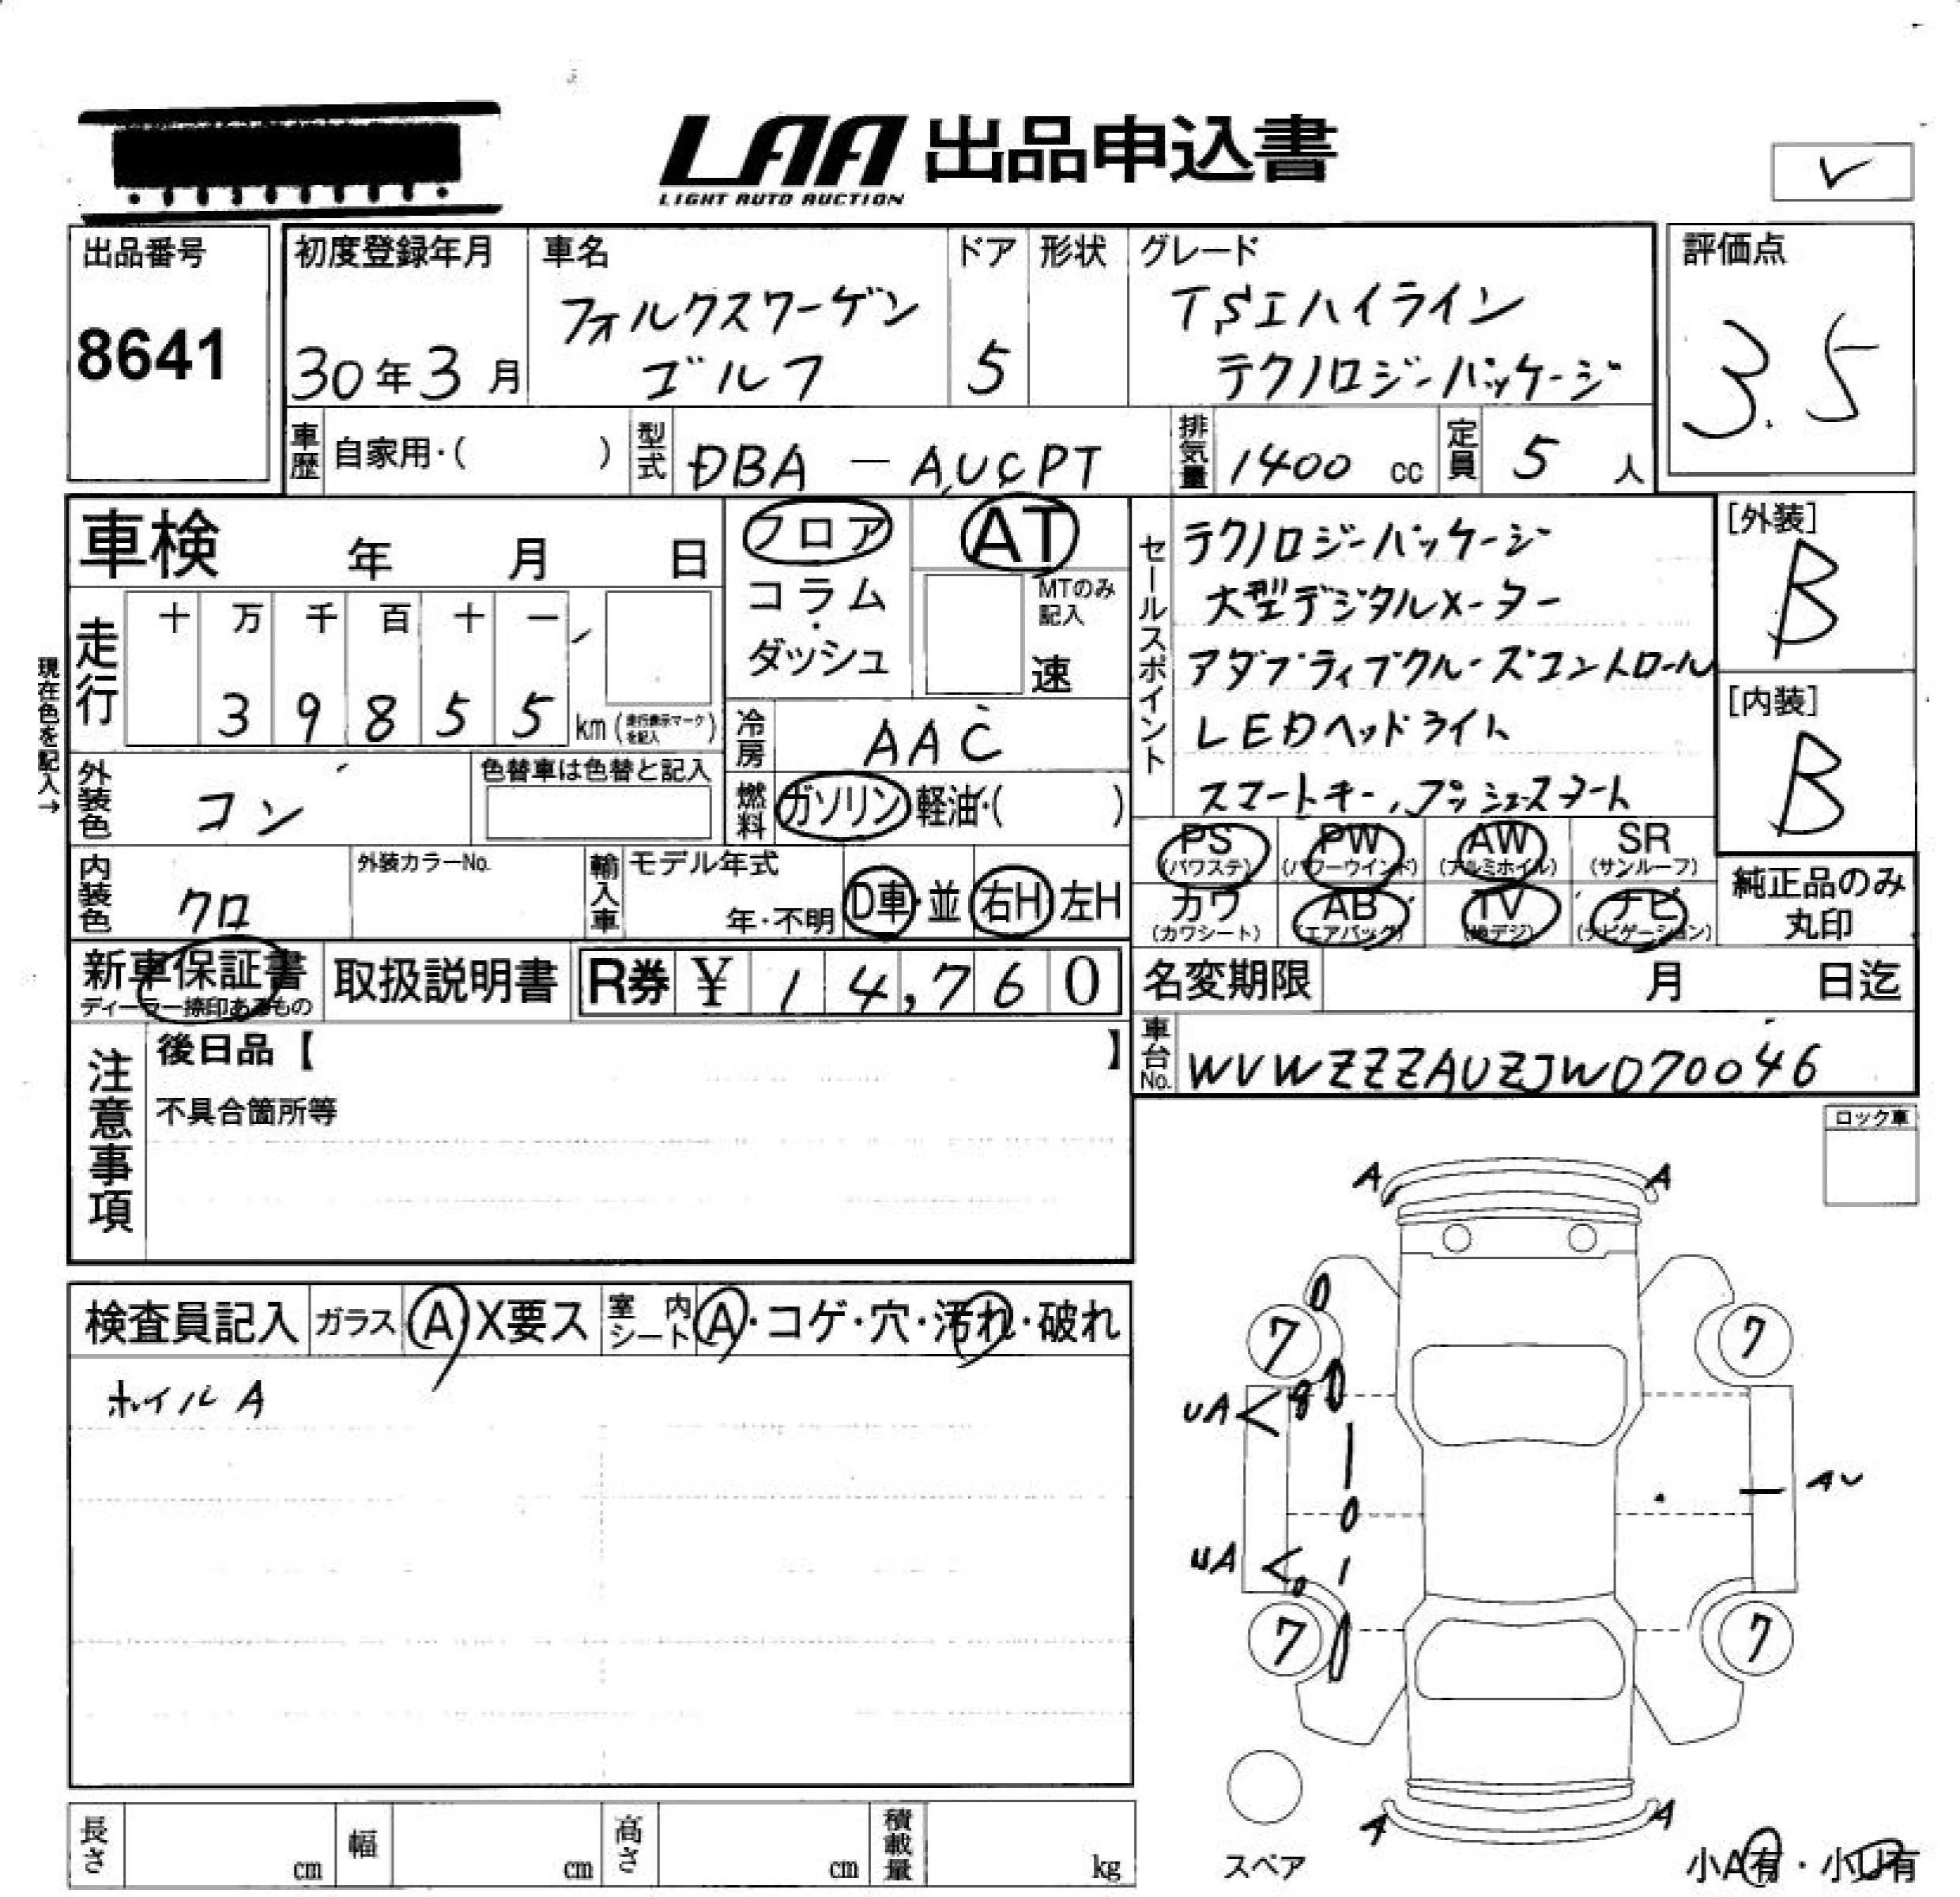 LAA 出品申込書
LIGHT AUTO AUCTION
✓
出品番号
8641
初度登録年月
30年3月
車名
フォルクスワーゲン
ゴルフ
ドア
5
形状
グレード
TSIハイライン
テクノロジーパッケージ
評価点
3.5
車歴 自家用・( )
型式 DBA - AUCPT
排気量 1400 cc
定員 5 人
車検 年 月 日
フロア
コラム
・
ダッシュ
AT
MTのみ
記入
速
セールスポイント
テクノロジーパッケージ
大型デジタルメーター
アダプティブクルーズコントロール
LEDヘッドライト
スマートキー,プッシュスタート
[外装]
B
[内装]
B
現在色を記入→
走行
十 万 千 百 十 一
3 9 8 5 5 km (走行表示マークを記入)
冷房 AAC
外装色 コン
色替車は色替と記入
燃料 ガソリン 軽油・( )
内装色 クロ
外装カラーNo.
輸入車 モデル年式
年・不明
D車・並 右H 左H
PS
(パワステ)
PW
(パワーウインド)
AW
(アルミホイル)
SR
(サンルーフ)
カワ
(カワシート)
AB
(エアバッグ)
TV
(地デジ)
ナビ
(ナビゲーション)
純正品のみ
丸印
新車保証書
ディーラー捺印あるもの
取扱説明書
R券 ¥ 1 4,7 6 0
名変期限 月 日迄
車台No. WVWZZZAUZJW070046
注意事項
後日品【 】
不具合箇所等
ロック車
検査員記入 ガラス A X要ス 室内シート A・コゲ・穴・汚れ・破れ
ホイルA
A A
7 7
UA
AU
UA
7 7
A A
スペア
小A有・小U有
長さ cm 幅 cm 高さ cm 積載量 kg